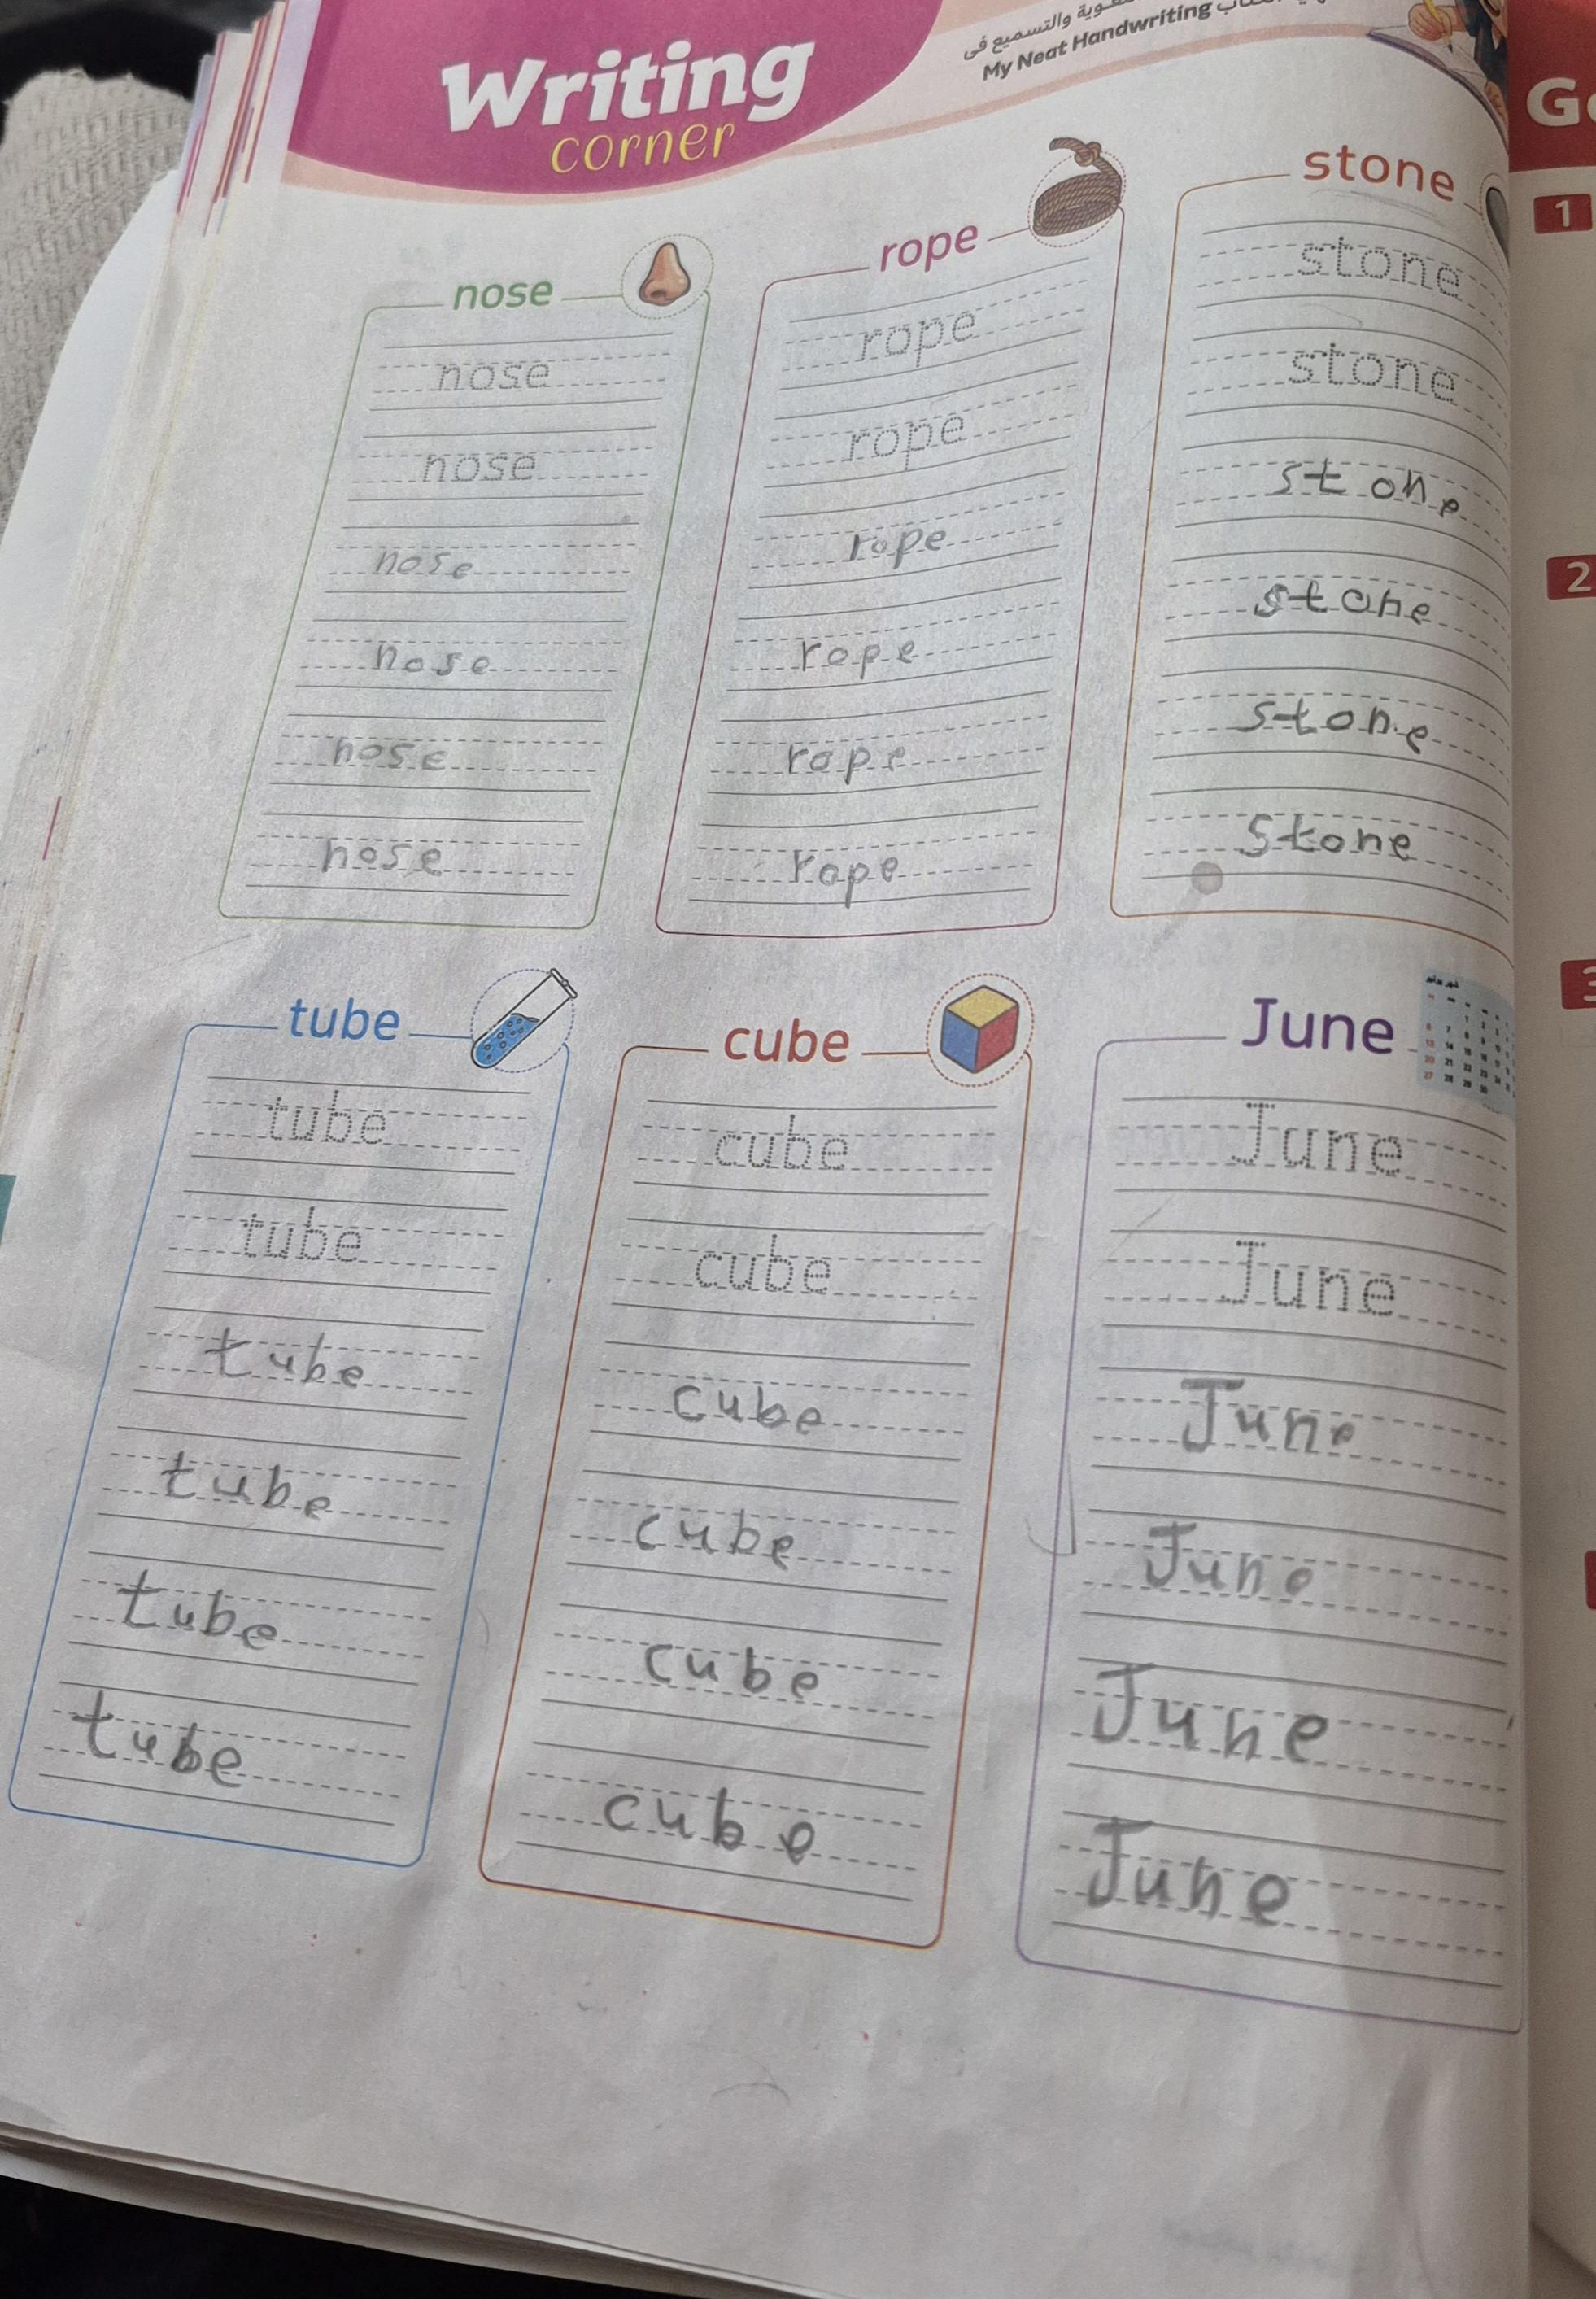 Writing
corner
والتسميع فى
My Neat Handwriting
nose
nose
nose
nose
nose
nose
nose
rope
rope
rope
rope
rope
rope
rope
stone
stone
stone
stone
stone
stone
stone
tube
tube
tube
tube
tube
tube
tube
cube
cube
cube
cube
cube
cube
cube
June
June
June
June
June
June
June
1
2
3